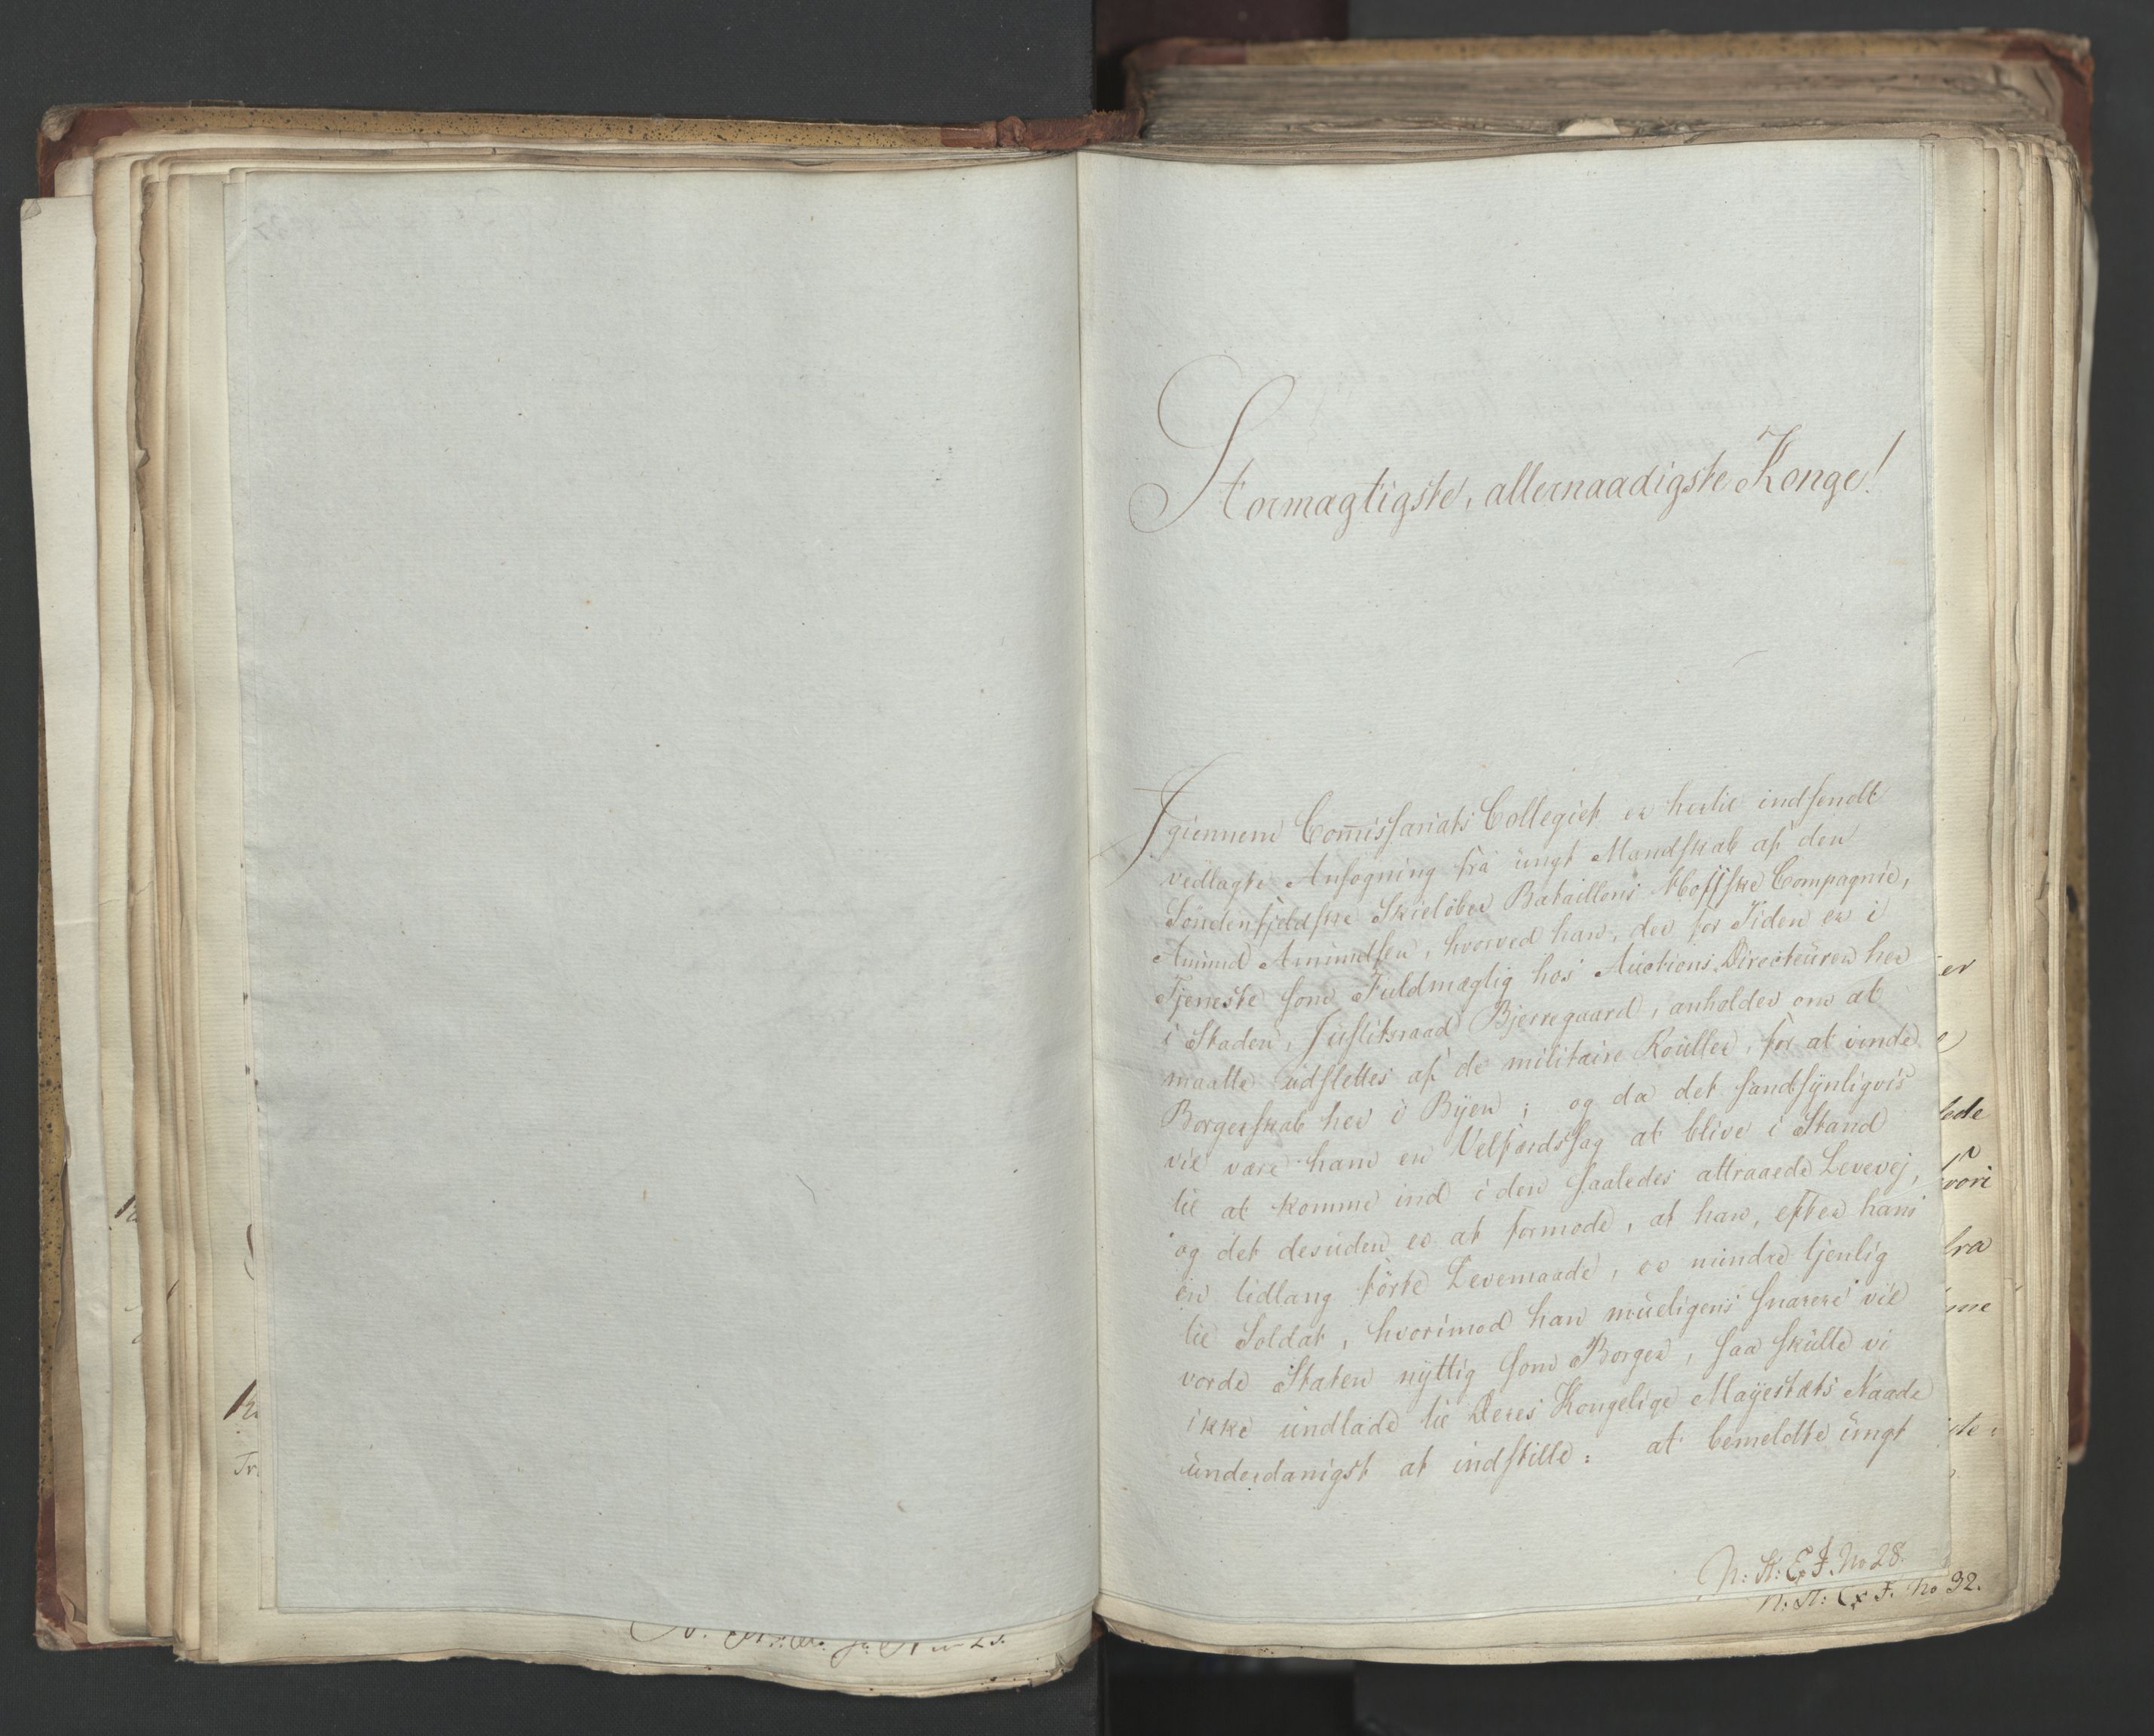 Stormagtigste, allernaadigste Konge!
Igiennem Com̄issariats Collegiet er hertil indsendt
vedlagte Ansøgning fra ungt Mandskab af den
Søndenfjeldske Skieløber Bataillons Mossske Compagnie,
Amund Amundsen, hvorved han, der for Tiden er i
Tjeneste som Fuldmægtig hos Auctions Directeuren her
i Staden, Justitsraad Bjerregaard, anholder om at
maatte udslettes af de militaire Rouller, for at vinde
Borgerskab her i Byen; og da det sandsynligvis
vil være ham en Velfærdssag at blive i Stand
til at komme ind i den saaledes attraaede Levevej,
og det desuden er at formode, at han, efter hans
en tidlang førte Levemaade, er mindre tjenlig
til Soldat, hvorimod han mueligens snarere vil
vorde Staten nyttig som Borger, saa skulle vi
ikke undlade til Deres Kongelige Mayestæts Naade
underdanigst at indstille: at bemeldte ungt
N: St: Ex J. No 28.
N: St: Ex J. No 32.